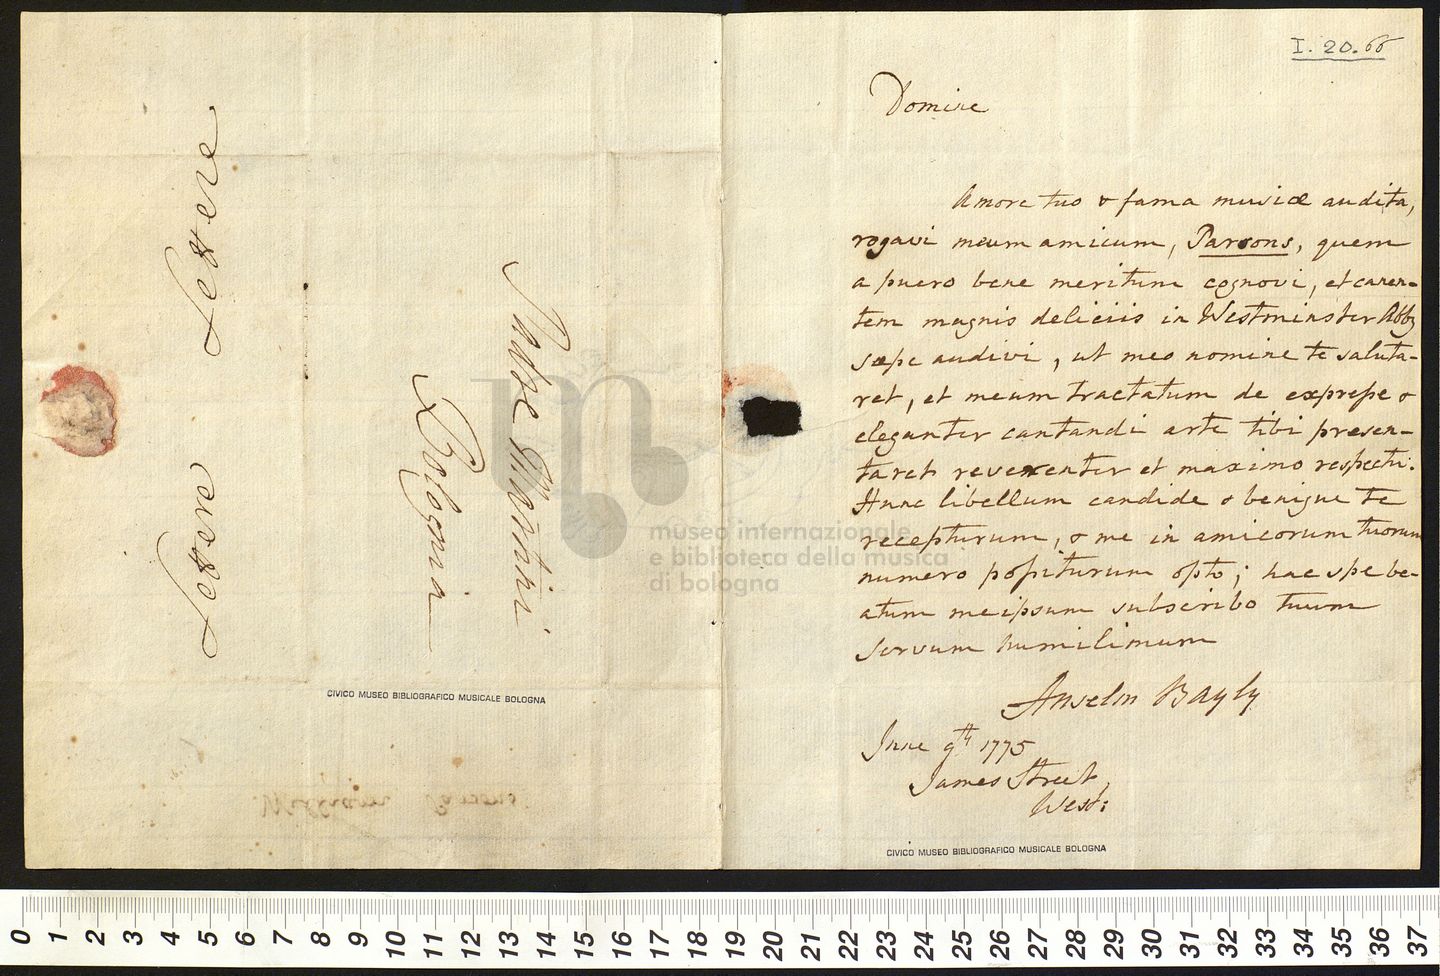 Lettere Lettere
Padre Martini
Bologna
CIVICO MUSEO BIBLIOGRAFICO MUSICALE BOLOGNA
William Parsons
I. 20. 66
Domine
Amore tuo & fama musicæ audita,
rogavi meum amicum, Parsons, quem
a puero bene meritum cognovi, et canen-
tem magnis deliciis in Westminster Abby
sæpe audivi, ut meo nomine te saluta-
ret, et meum tractatum de expresse &
eleganter cantandi arte tibi presen-
taret reverenter et maximo respectu.
Hunc libellum candide & benigne te
recepturum, & me in amicorum tuorum
numero positurum opto; hac spe be-
atum meipsum subscribo tuum
servum humilimum
Anselm Bayly
June 9th 1775
James Street,
West:
CIVICO MUSEO BIBLIOGRAFICO MUSICALE BOLOGNA
museo internazionale
e biblioteca della musica
di bologna
0 1 2 3 4 5 6 7 8 9 10 11 12 13 14 15 16 17 18 19 20 21 22 23 24 25 26 27 28 29 30 31 32 33 34 35 36 37